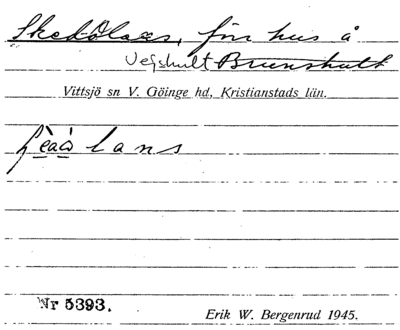 Skedolaes, förr hus å
Vejshult Brunshult
Vittsjö sn V. Göinge hd, Kristianstads län.
lans
Nr 5393.
Erik W. Bergenrud 1945.